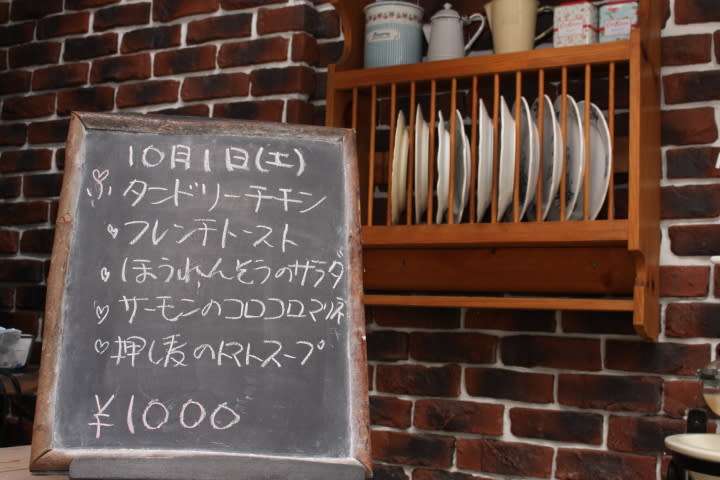 10月1日(土)
♡タンドリーチキン
♡フレンチトースト
♡ほうれんそうのサラダ
♡サーモンのコロコロマリネ
♡押し麦のトマトスープ
¥1000